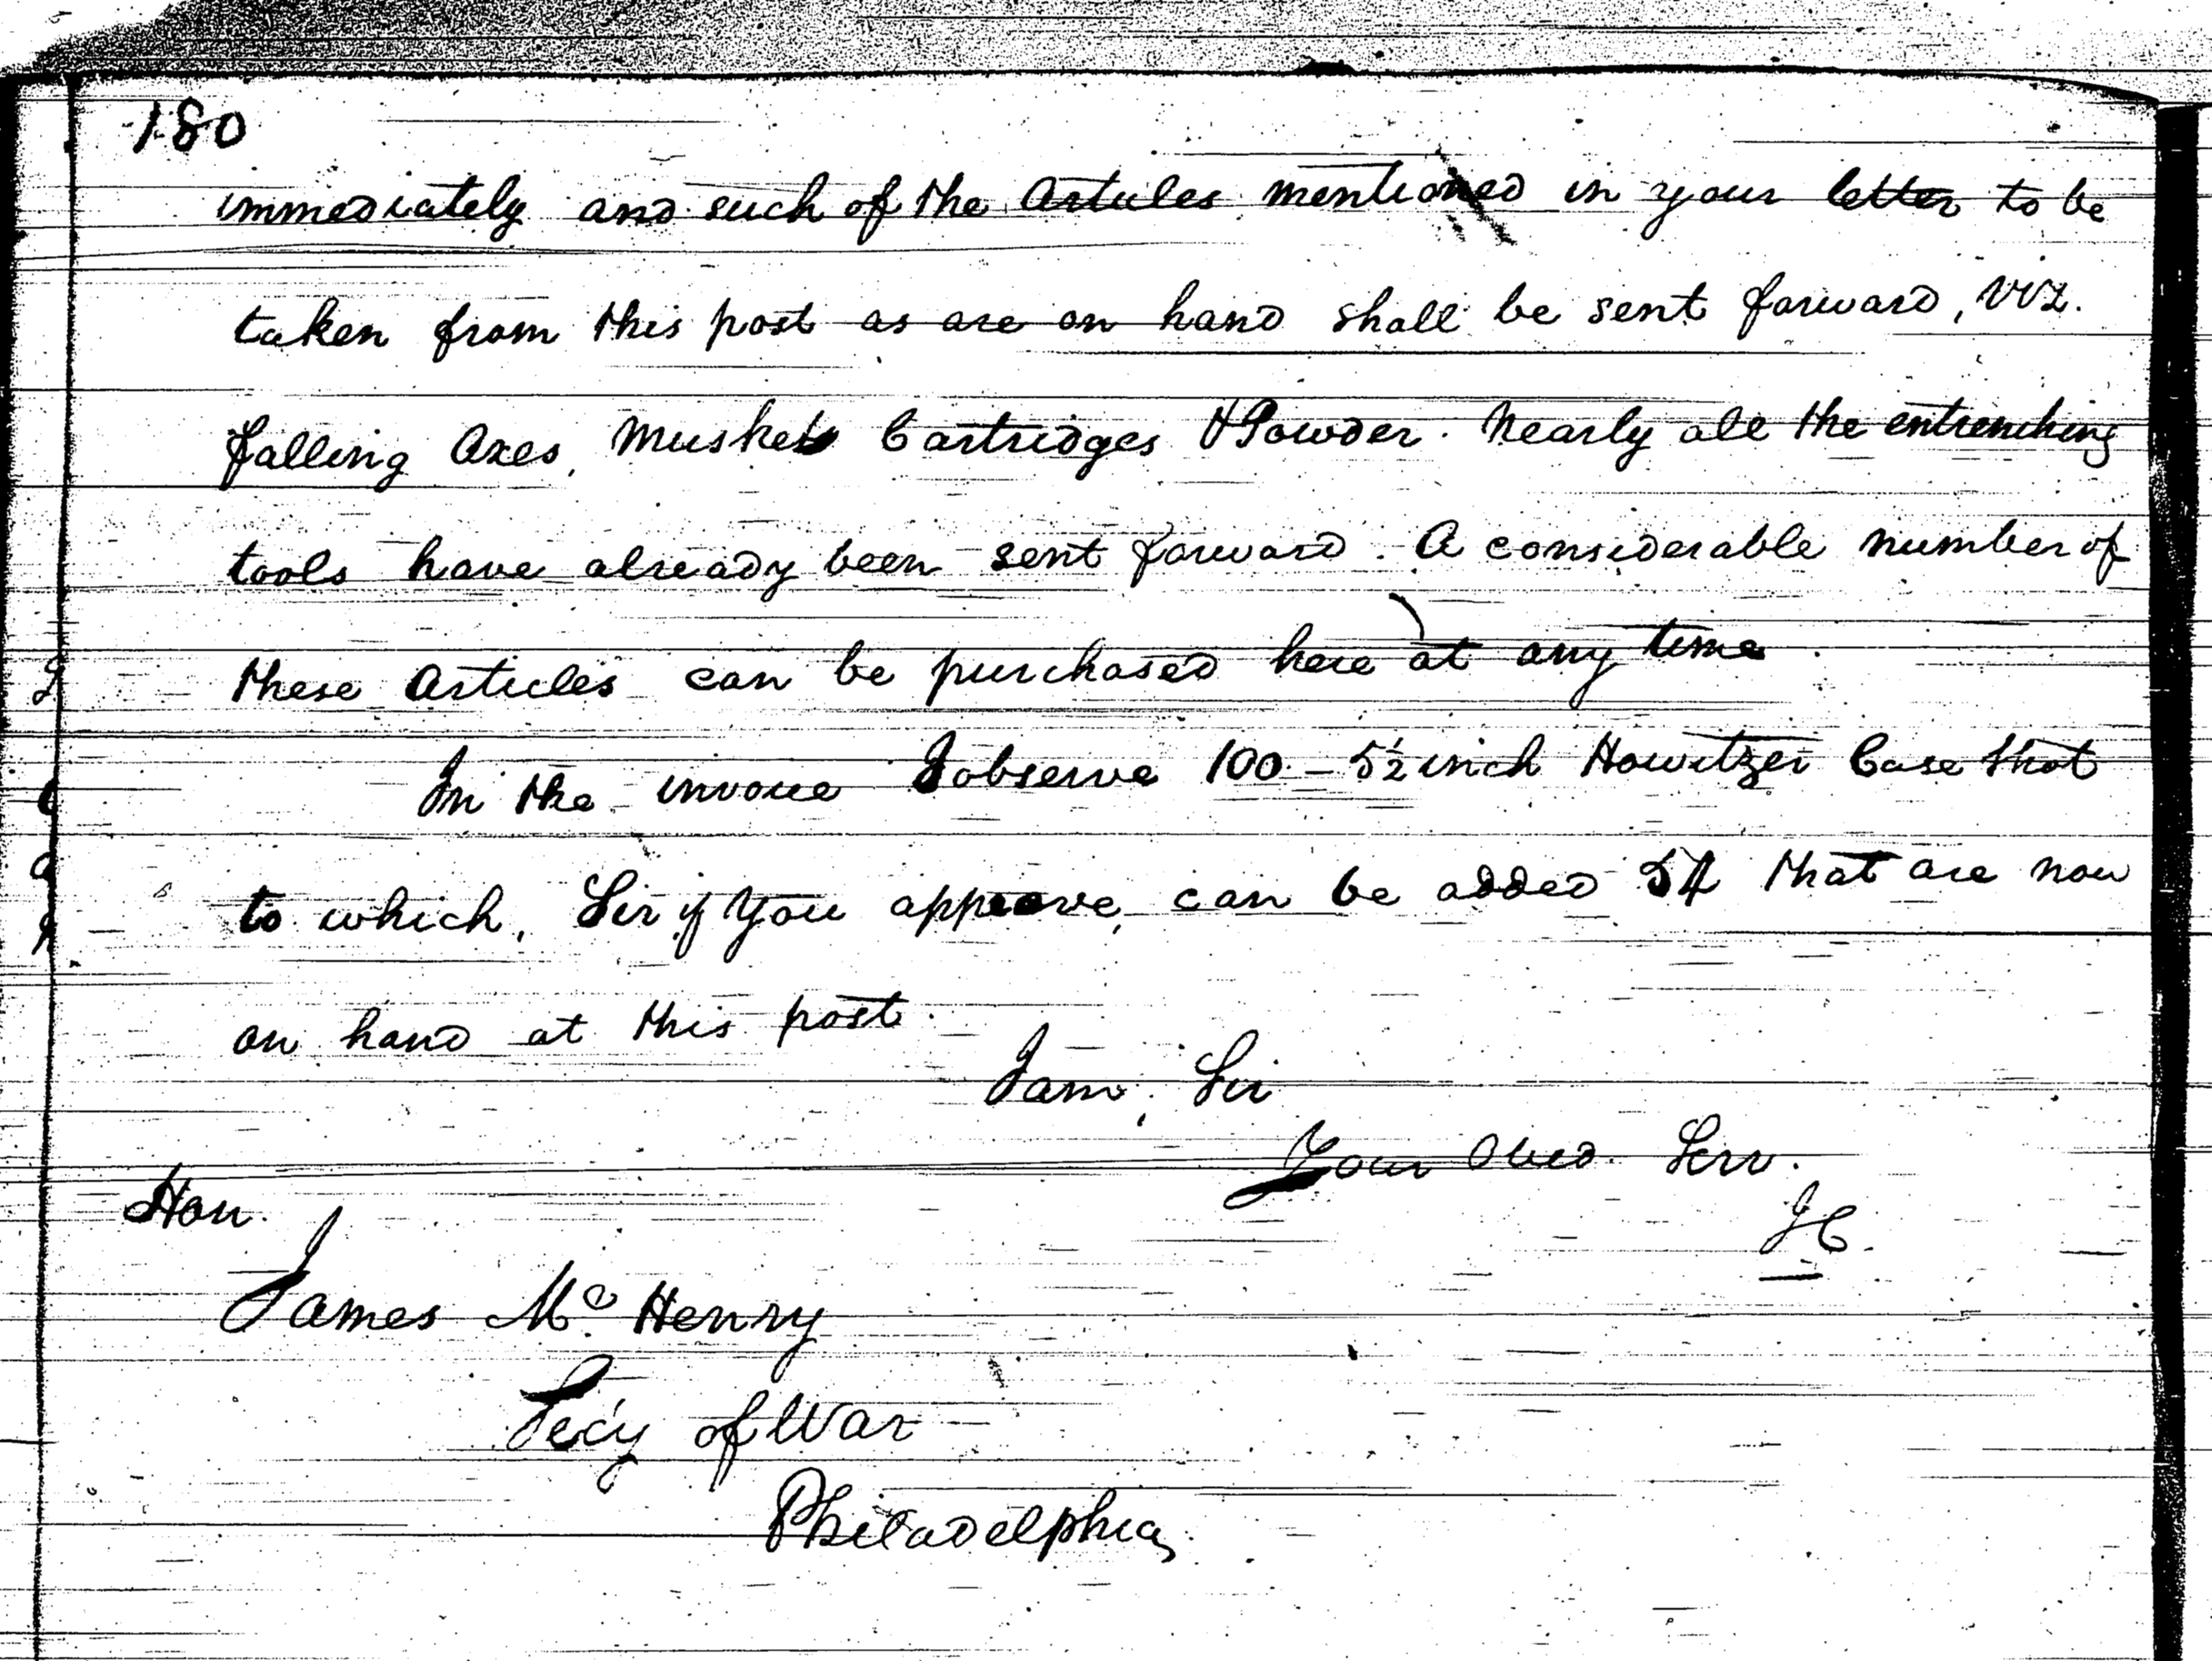 180
immediately and such of the Articles mentioned in your letter to be
taken from this post as are on hand shall be sent forward, viz.
falling Axes, Musket Cartridges & Powder. Nearly all the entrenching
tools have already been sent forward. A considerable number of
these Articles can be purchased here at any time.
In the invoice I observe 100 - 5½ inch Howitzer Case Shot
to which, Sir if you approve, can be added 54 that are now
on hand at this post.
I am, Sir
Your Obed. Serv.
Hon.
JC.
James Mc Henry
Sec'y of War
Philadelphia